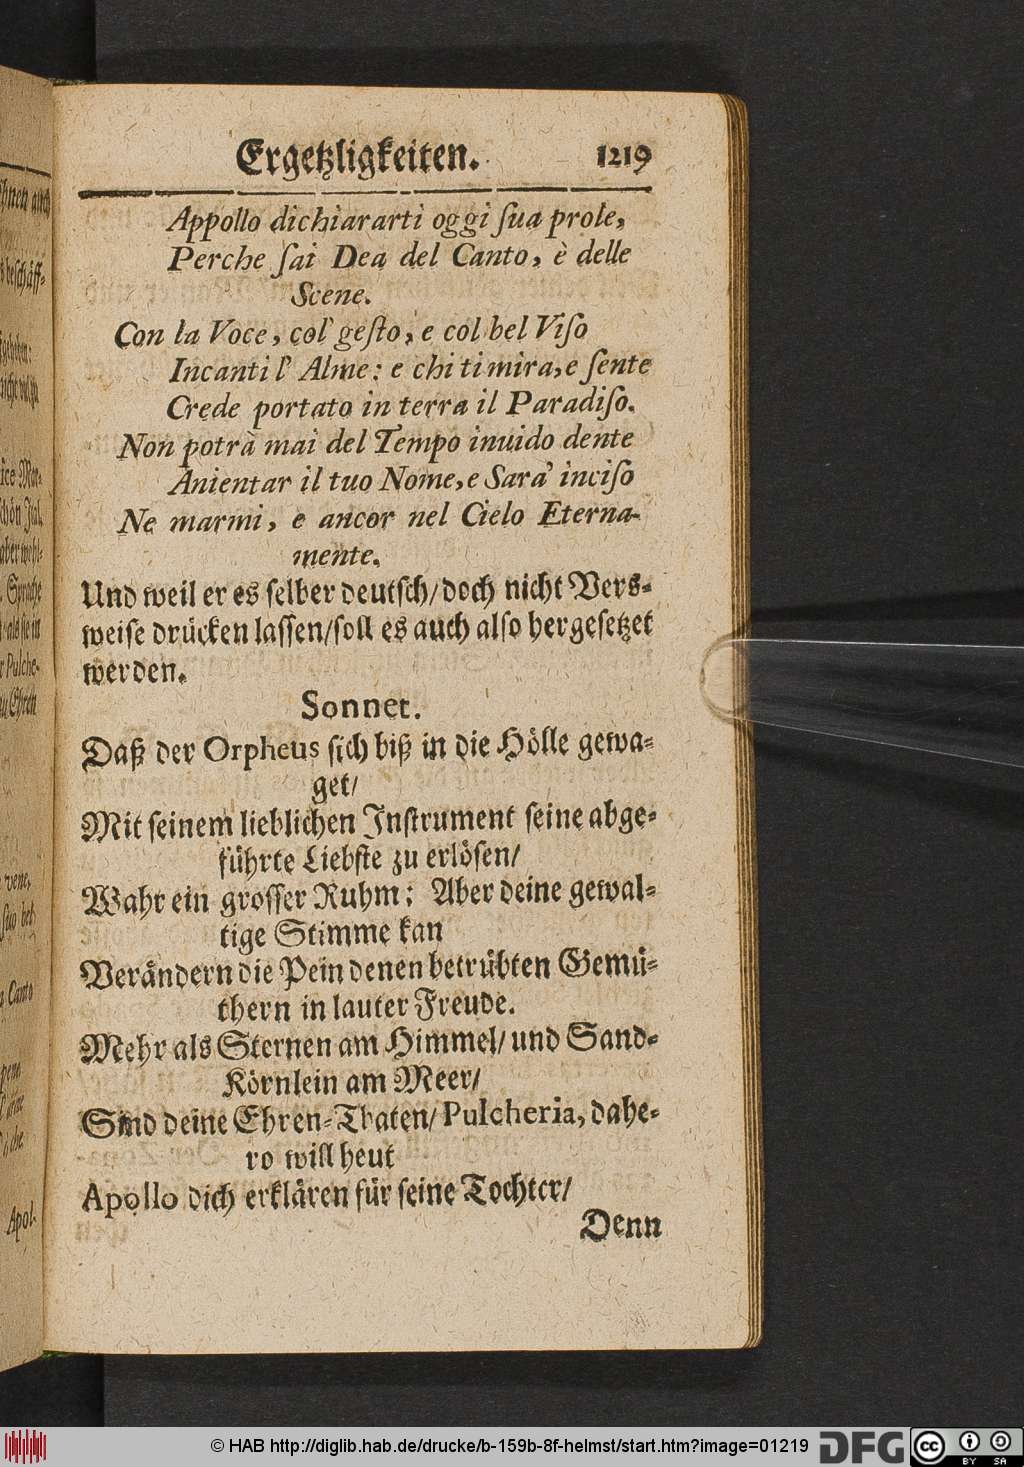 Ergetzligkeiten. 1219
Appollo dichiararti oggi ſua prole,
Perche ſai Dea del Canto, è delle
Scene.
Con la Voce, col' geſto, e col bel Viſo
Incanti l' Alme: e chi ti mira, e ſente
Crede portato in terra il Paradiſo.
Non potrà mai del Tempo inuido dente
Anientar il tuo Nome, e Sara' inciſo
Ne marmi, e ancor nel Cielo Eterna-
mente.
Und weil er es ſelber deutſch/ doch nicht Vers-
weiſe drücken laſſen/ ſoll es auch alſo hergeſetzet
werden.
Sonnet.
Daß der Orpheus ſich biß in die Hölle gewa-
get/
Mit ſeinem lieblichen Inſtrument ſeine abge-
führte Liebſte zu erlöſen/
Wahr ein groſſer Ruhm: Aber deine gewal-
tige Stimme kan
Verändern die Pein denen betrübten Gemü-
thern in lauter Freude.
Mehr als Sternen am Himmel/ und Sand-
Körnlein am Meer/
Sind deine Ehren-Thaten/ Pulcheria, dahe-
ro will heut
Apollo dich erklären für ſeine Tochter/
Denn
© HAB http://diglib.hab.de/drucke/b-159b-8f-helmst/start.htm?image=01219 DFG cc BY SA